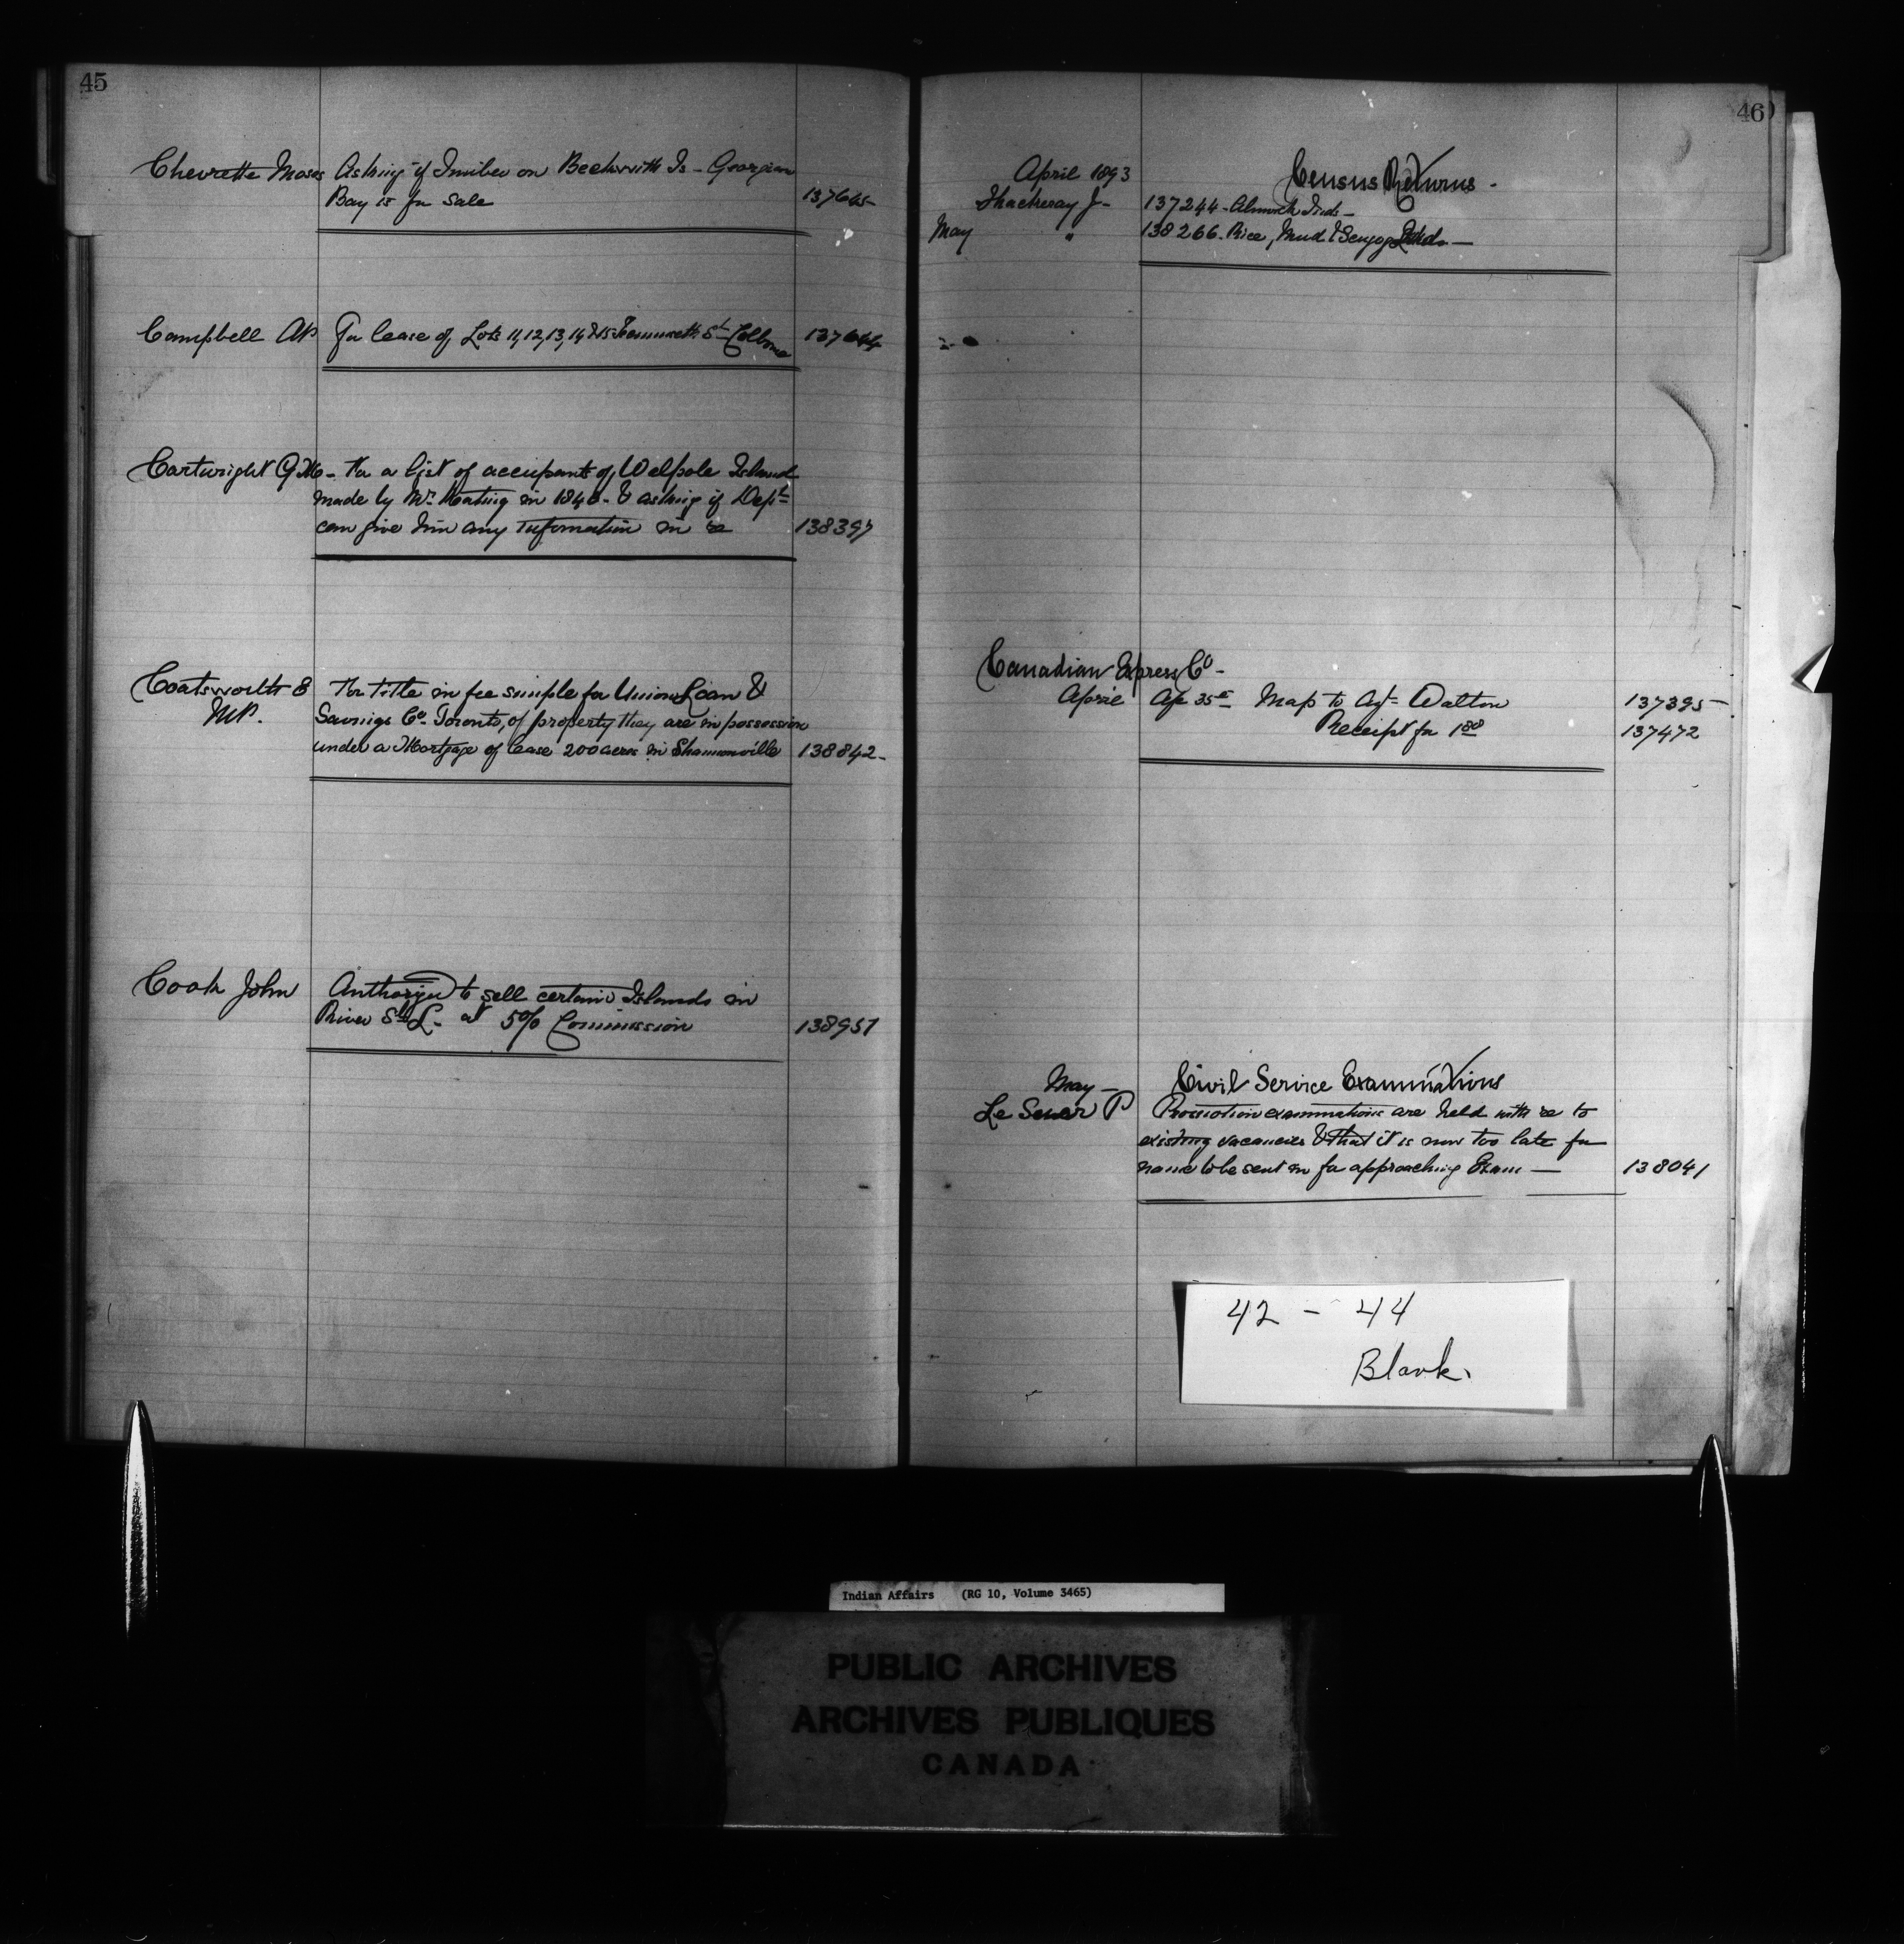 45
Chevrette Moses Asking if Timber on Beckwith Is - Georgian
Bay is for sale 137645
Campbell AP For lease of Lots 11, 12, 13, 14 & 15 St Colborne 137644
Cartwright G - For a list of occupants of Walpole Island
made by Mr Keating in 1840 - & asking if Dept
can give him any information in re 138397
Coatsworth E For title in fee simple for Union Loan &
MP. Savings Co. Toronto, of property they are in possession
under a Mortgage of lease 200 acres in Shannonville 138842 -
Cook John Authorized to sell certain Islands in
River St L. at 5% Commission 138951
46
April 1893 Census Returns -
Thackeray J - 137244 - Alnwick Inds -
May " 138266 - Rice, Mud & Scugog Inds -
Canadian Express Co -
April Ap 35c Map to Agt Walton 137395 -
Receipt for 137472
May - Civil Service Examinations
Le Sueur P Promotion examinations are held with re to
existing vacancies & that it is now too late for
name to be sent in for approaching Exam - 138041
42 - 44
Blank.
Indian Affairs (RG 10, Volume 3465)
PUBLIC ARCHIVES
ARCHIVES PUBLIQUES
CANADA